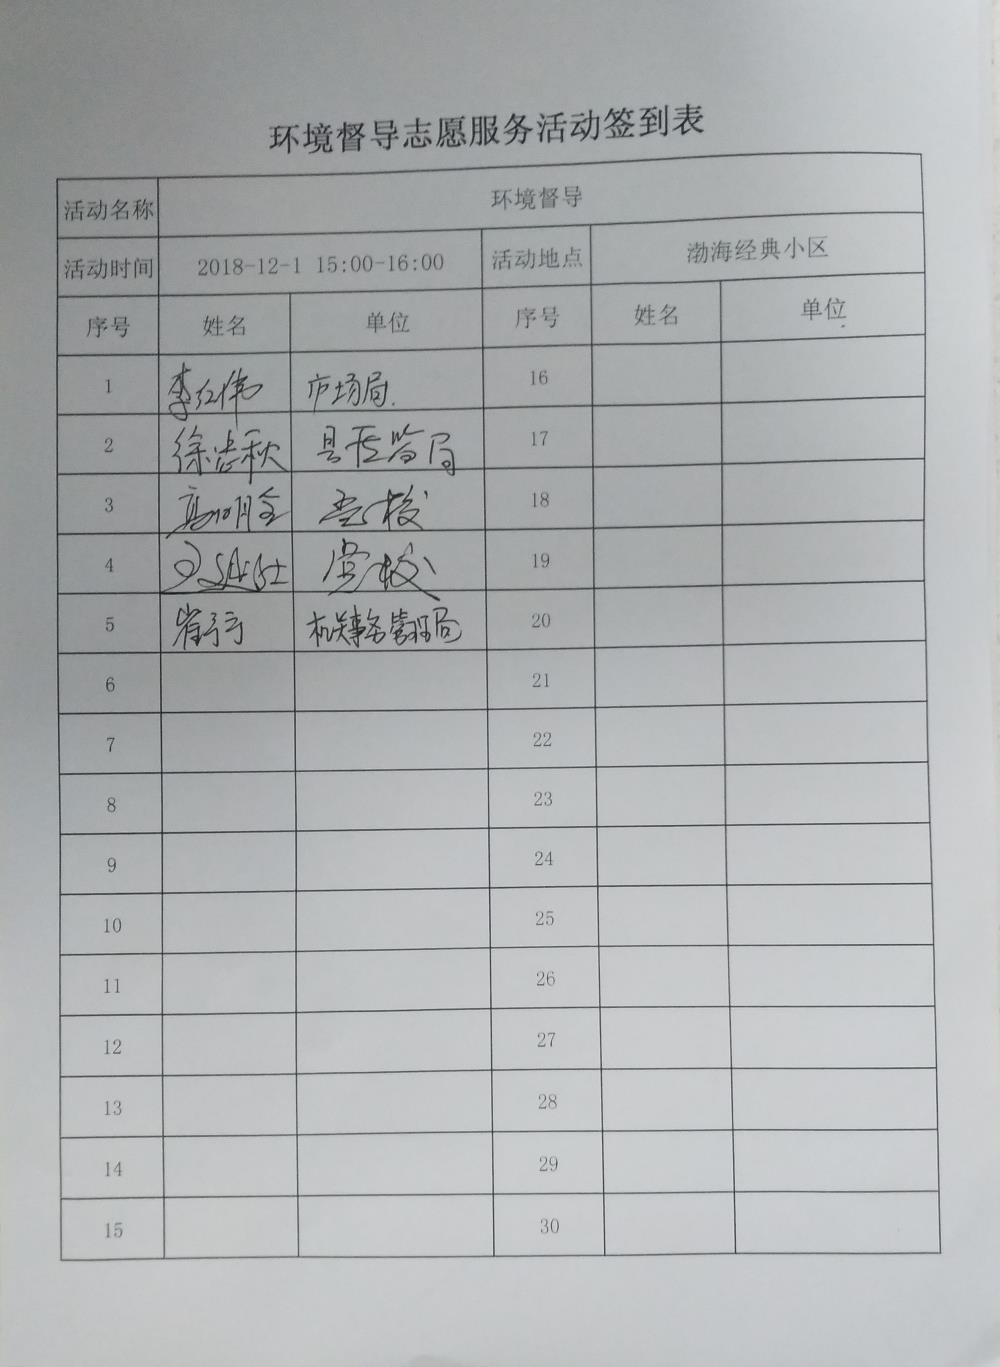 环境督导志愿服务活动签到表
活动名称 环境督导
活动时间 2018-12-1 15:00-16:00 活动地点 渤海经典小区
序号 姓名 单位 序号 姓名 单位
1 李红伟 市场局. 16
2 徐志秋 县医监局 17
3 高明全 党校 18
4 党校 19
5 崔 机关事务管理局 20
6 21
7 22
8 23
9 24
10 25
11 26
12 27
13 28
14 29
15 30